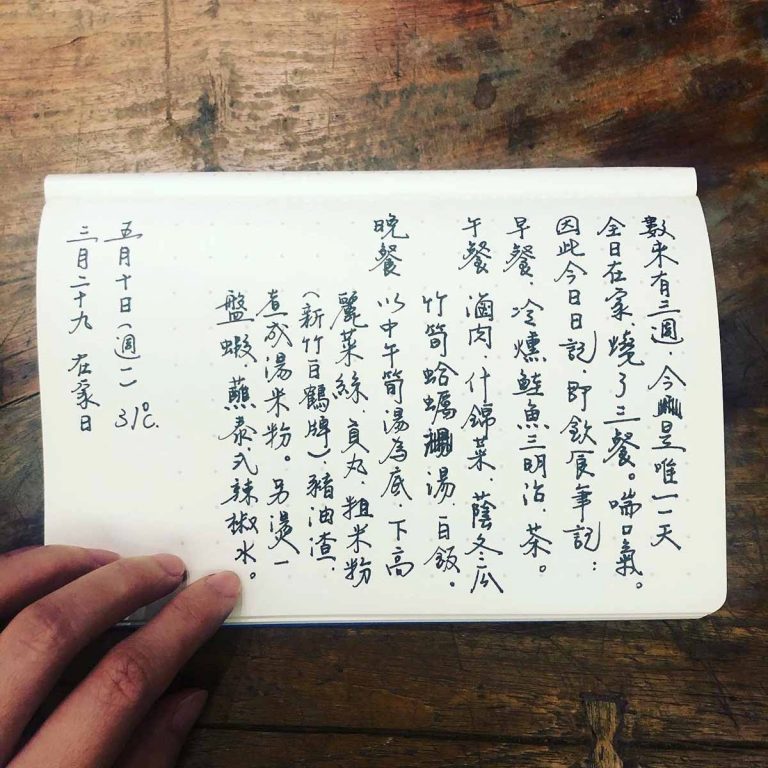 數來有三週，今是唯一一天
全日在家，燒了三餐。喘口氣。
因此今日日記，即飲食筆記：
早餐、冷燻鮭魚三明治，茶。
午餐 滷肉，什錦菜，蔭冬瓜
竹筍蛤蠣湯，白飯。
晚餐 以中午筍湯為底，下高
麗菜絲、貢丸、粗米粉
（新竹白鶴牌），豬油渣，
煮成湯米粉。另燙一
盤蝦，蘸泰式辣椒水。
五月十日（週一）31℃.
三月二十九 在家日